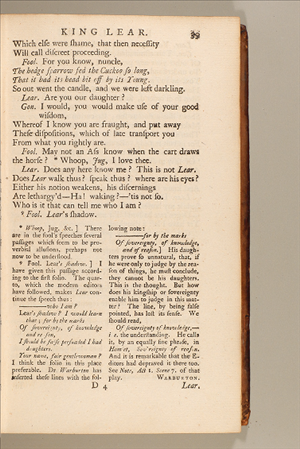 KING LEAR. 39
Which else were shame, that then necessity
Will call discreet proceeding.
Fool. For you know, nuncle,
The hedge sparrow fed the Cuckoo so long,
That it had its head bit off by its Young.
So out went the candle, and we were left darkling.
Lear. Are you our daughter?
Gon. I would, you would make use of your good
wisdom,
Whereof I know you are fraught, and put away
These dispositions, which of late transport you
From what you rightly are.
Fool. May not an Ass know when the cart draws
the horse? * Whoop, Jug, I love thee.
Lear. Does any here know me? This is not Lear.
Does Lear walk thus? speak thus? where are his eyes?
Either his notion weakens, his discernings
Are lethargy'd—Ha! waking?—'tis not so.
Who is it that can tell me who I am?
† Fool. Lear's shadow.
* Whoop, Jug, &c. ] There
are in the fool's speeches several
passages which seem to be pro-
verbial allusions, perhaps not
now to be understood.
† Fool. Lear's shadow. ] I
have given this passage accord-
ing to the first folio. The quar-
to, which the modern editors
have followed, makes Lear con-
tinue the speech thus:
——who I am?
Lear's shadow? I would learn
that; for by the marks
Of sovereignty, of knowledge
and reason,
I should be false persuaded I had
daughters.
Your name, fair gentlewoman?
I think the folio in this place
preferable. Dr Warburton has
inserted these lines with the fol-
lowing note:
——for by the marks
Of sovereignty, of knowledge,
and of reason. ] His daugh-
ters prove so unnatural, that, if
he were only to judge by the rea-
son of things, he must conclude,
they cannot be his daughters.
This is the thought. But how
does his kingship or sovereignty
enable him to judge in this mat-
ter? The line, by being false
pointed, has lost its sense. We
should read,
Of sovereignty of knowledge.—
i e. the understanding. He calls
it, by an equally fine phrase, in
Hamlet, Sov'reignty of reason.
And it is remarkable that the E-
ditors had depraved it there too.
See Note, Act 1. Scene 7. of that
play. WARBURTON.
D 4 Lear.